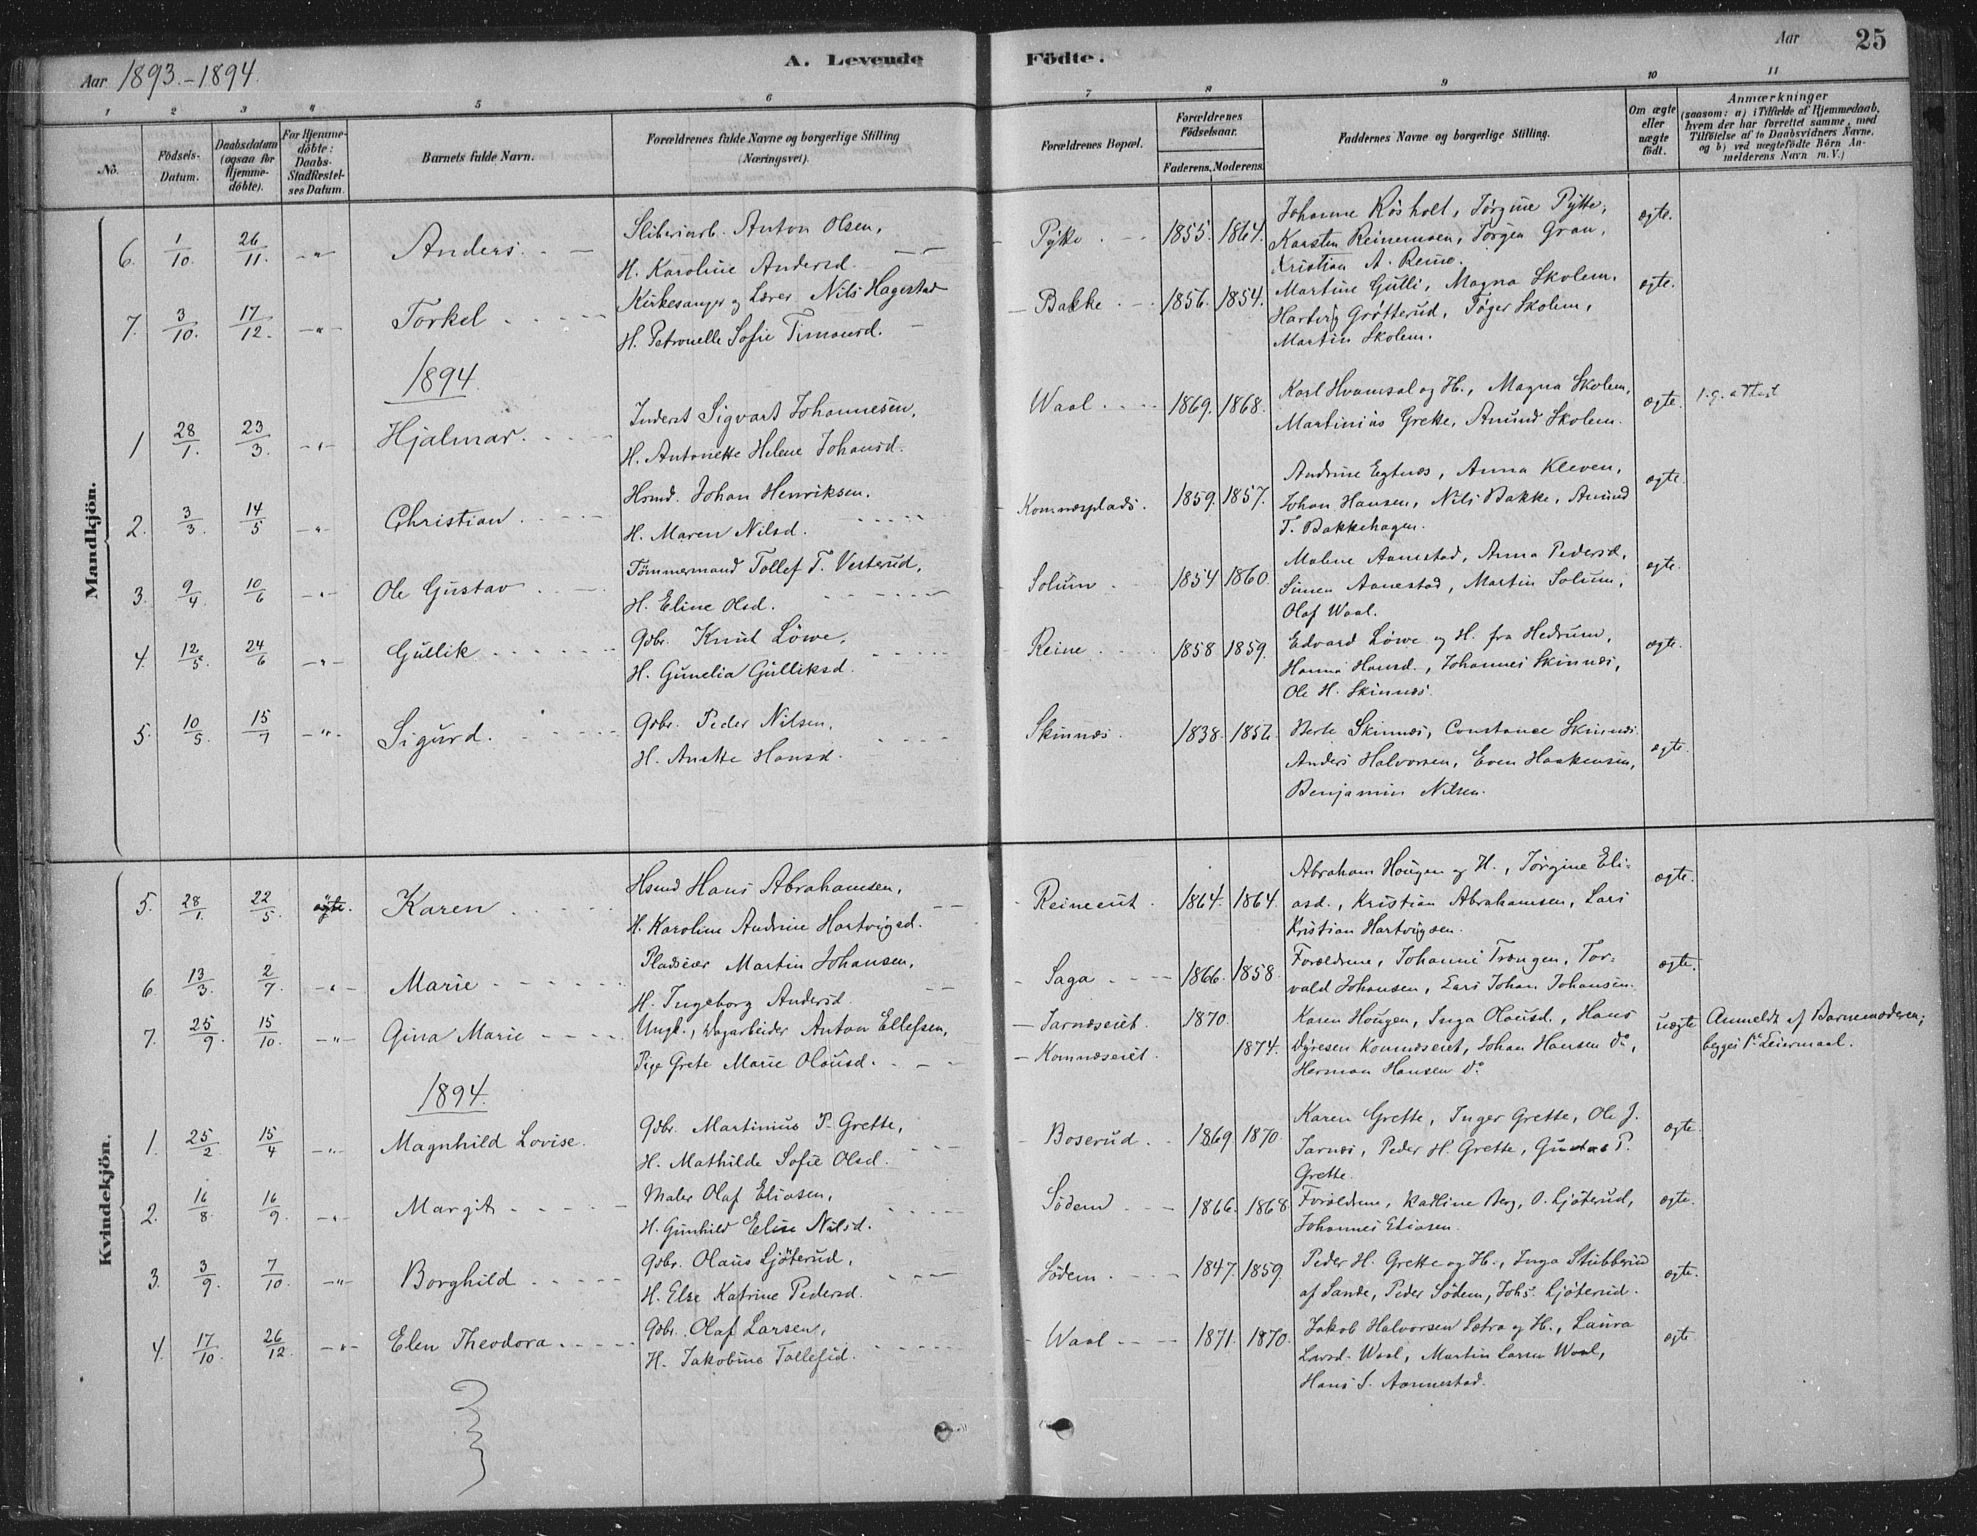 Aar 1893.-1894.
A. Levende Födte.
Aar 25
1 2 3 4 5 6 7 8 9 10 11
No.
Födsels-Datum.
Daabsdatum (ogsaa for Hjemme-döbte).
For Hjemme-döbte: Daabs-Stadfæstel-ses Datum.
Barnets fulde Navn.
Forældrenes fulde Navne og borgerlige Stilling (Næringsvei).
Forældrenes Bopæl.
Forældrenes Födselsaar.
Faderens. Moderens.
Faddernes Navne og borgerlige Stilling.
Om ægte eller uægte födt.
Anmærkninger
(saasom: a) i Tilfælde af Hjemmedaab,
hvem der har forrettet samme, med
Tilföielse af to Daabsvidners Navne,
og b) ved uægtefödte Börn An-
melderens Navn m. V.)
Mandkjön.
6. 1/10. 26/11. -"- Anders.
Sliberiarb. Anton Olsen,
H. Karoline Andersd.
Pÿke. 1855. 1864.
Johanne Rösholt, Jörgine Pÿtte,
Karsten Reinemoen, Jörgen Gran,
Kristian A. Reine.
ægte.
7. 3/10. 17/12. -"- Torkel
Kirkesanger og Lærer Nils Hagestad
H. Petronelle Sofie Timansd.
Bakke 1856. 1854.
Martine Gulli, Magna Skolem,
Hartvig Grötterud, Töger Skolem,
Martin Skolem.
ægte.
1894.
1 28/1. 23/3. -"- Hjalmar.
Inderst Sigvart Johannesen,
H. Antonette Helene Johansd.
Waal. 1869. 1868.
Karl Hvamsal og H., Magna Skolem,
Martinius Grette, Amund Skolem.
ægte. 1.g. attest
2. 3/3. 14/5 -"- Christian.
Hsmd. Johan Henriksen.
H. Maren Nilsd.
Komnæsplads. 1859. 1857.
Andrine Egtnæs, Anna Kleven,
Johan Hansen, Nils Bakke, Amund
T. Bakkehagen.
ægte.
3. 9/4. 10/6 -"- Ole Gustav
Tömmermand Tollef T. Vesterud,
H. Eline Olsd.
Solum. 1854 1860.
Malene Aanestad, Anna Pedersd,
Simen Aanestad, Martin Solum,
Olaf Waal.
ægte.
4. 12/5. 24/6 -"- Gullik
Gdbr. Knut Löwe,
H. Gunelia Gulliksd.
Reine 1858 1859.
Edvard Löwe og H. fra Hedrum,
Hanna Hansd., Johannes Skinnæs,
Ole H. Skinnæs.
ægte.
5. 10/5. 15/7 -"- Sigurd.
Gdbr. Peder Nilsen,
H. Anette Hansd.
Skinnæs. 1838. 1852.
Berte Skinnæs, Constance Skinnæs
Anders Halvorsen, Even Haakensen,
Benjamin Nilsen.
ægte.
Kvindekjön.
5. 28/1. 22/5. ægte. Karen
Hsmd Hans Abrahamsen,
H. Karoline Andrine Hartvigsd.
Reineeiet. 1864. 1864.
Abraham Hougen og H., Jörgine Eli-
asd., Kristian Abrahamsen, Lars
Kristian Hartvigsen.
ægte.
6. 13/3. 2/7. -"- Marie
Pladseier Martin Johansen,
H. Ingeborg Andersd.
Saga 1866. 1858
Forældrene, Johanne Trængen, Tor-
vald Johansen, Lars Johan Johansen.
ægte.
7. 25/9. 15/10. -"- Gina Marie
Ungk., Dagarbeider Anton Ellefsen,
Pige Grete Marie Olausd.
Jarnæseiet. 1870.
Komnæseiet. 1874.
Karen Hougen, Inga Olausd., Hans
Dyresen Komnæseiet, Johan Hansen do,
Herman Hansen do
uægte Anmeldt af Barnemoderen;
begges 1ste Leiermaal.
1894.
1. 25/2 15/4 -"- Magnhild Lovise.
Gdbr. Martinius P. Grette,
H. Mathilde Sofie Olsd.
Boserud. 1869 1870.
Karen Grette, Inger Grette, Ole J.
Jarnæs, Peder H. Grette, Gustav P.
Grette.
ægte.
2. 16/8. 16/9. -"- Margit
Maler Olaf Eliasen,
H. Gunhild Elise Nilsd.
Södem 1866. 1868
Forældrene, Karline Berg, O. Ljöterud,
Johannes Eliasen.
ægte.
3. 3/9. 7/10. -"- Borghild
Gdbr. Olaus Ljöterud,
H. Else Katrine Pedersd.
Södem. 1847. 1859.
Peder H. Grette og H., Inga Stubberud
af Sande, Peder Södem, Johs. Ljöterud.
ægte.
4. 17/10. 26/12. -"- Elen Theodora.
Gdbr. Olaf Larsen,
H. Jakobine Tollefsd.
Waal 1871. 1870.
Jakob Halvorsen Sætra og H., Laura
Larsd. Waal, Martin Larsen Waal,
Hans S. Aannestad.
ægte